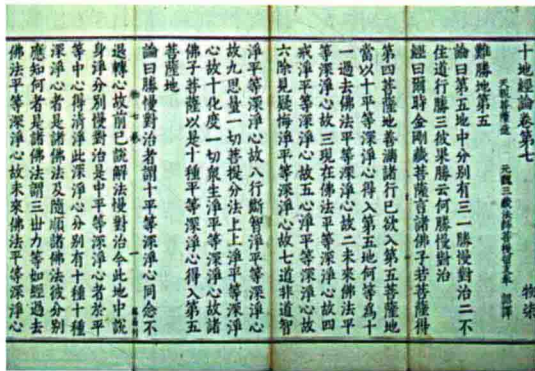 十地經論卷第七 物
天親菩薩造 元魏三藏法師菩提留支奉 詔譯
難勝地第五
論曰第五地中分別有三一勝慢對治二不
住道行勝三彼果勝云何勝慢對治
經曰爾時金剛藏菩薩言諸佛子若菩薩得
第四菩薩地善滿諸行已欲入第五菩薩地
當以十平等深淨心得入第五地何等為十
一過去佛法平等深淨心故二未來佛法平
等深淨心故三現在佛法平等深淨心故四
戒淨平等深淨心故五心淨平等深淨心故
六除見疑悔淨平等深淨心故七道非道智
淨平等深淨心故八行斷智淨平等深淨心
故九思量一切菩提分法上上淨平等深淨
心故十化度一切衆生淨平等深淨心故諸
佛子菩薩以是十種平等深淨心得入第五
菩薩地
論曰勝慢對治者謂十平等深淨心同念不
退轉心故前已說解法慢對治今此地中說
身淨分別慢對治是中平等深淨心者於平
等中心得清淨此深淨心分別有十種十種
深淨心者是諸佛法及隨順諸佛法彼分別
應知何者是諸佛法謂三世力等如經過去
佛法平等深淨心故未來佛法平等深淨心